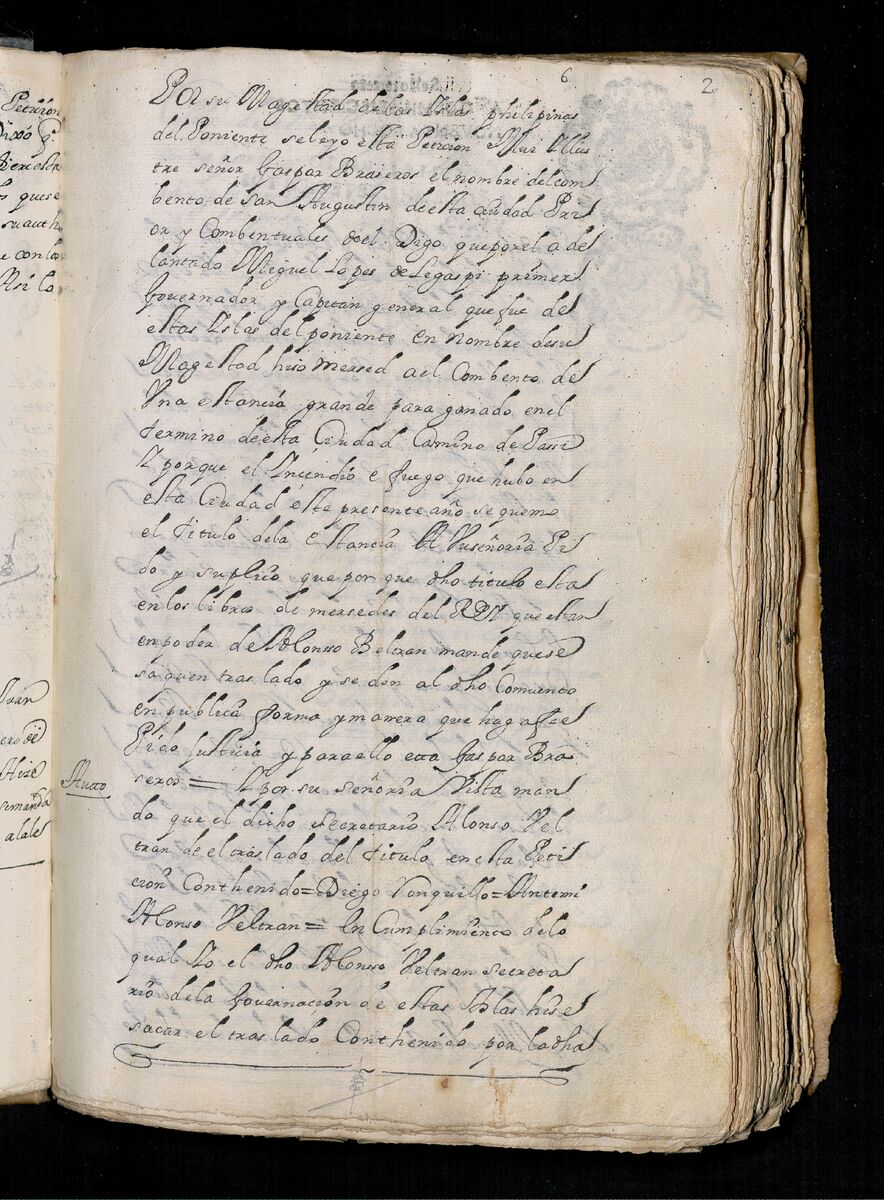 6
2
Por su Magestad de las Yslas philipinas
del Poniente se leyo esta Peticion Mui Illus
tre señor Gaspar Braseros el nombre del com
bento de san Augustin de esta ciudad Pri
or y Combentuales del Digo que por el ade
lantado Miguel Lopes de Legaspi primer
Governador y Capitan general que fue de
estas Yslas del poniente en nombre de su
Magestad hiso mersed a el Combento de
Vna estancia grande para ganado en el
termino de esta Ciudad Camino de Passi
Y porque el Incendio e fuego que hubo en
esta Ciudad este presente año se quemo
el titulo de la estancia A Vuseñoria Pi
do y suplico que por que dho titulo esta
en los libros de mersedes del REY que estan
en poder de Alonsso Beltran mande que se
saquen traslado y se den al dho Comuento
en publica forma y manera que haga fee
Pido Justicia y para ello etta Gaspar Bra
seros = Y por su señoria Vista man
Autto
do que el dicho secretario Alonso Vel
tran de el traslado del titulo en esta Peti
cion Conthenido = Diego Ronquillo = Antemi
Alonso Veltran = En Cumplimiento de lo
qual Yo el dho Alonsso Veltran secreta
rio de la Governacion de estas Yslas hise
sacar el traslado Conthenido por la dha
Peticion
esta
que se
su auth
e con los
Asi lo
Juan
ero de
Hize
semanda